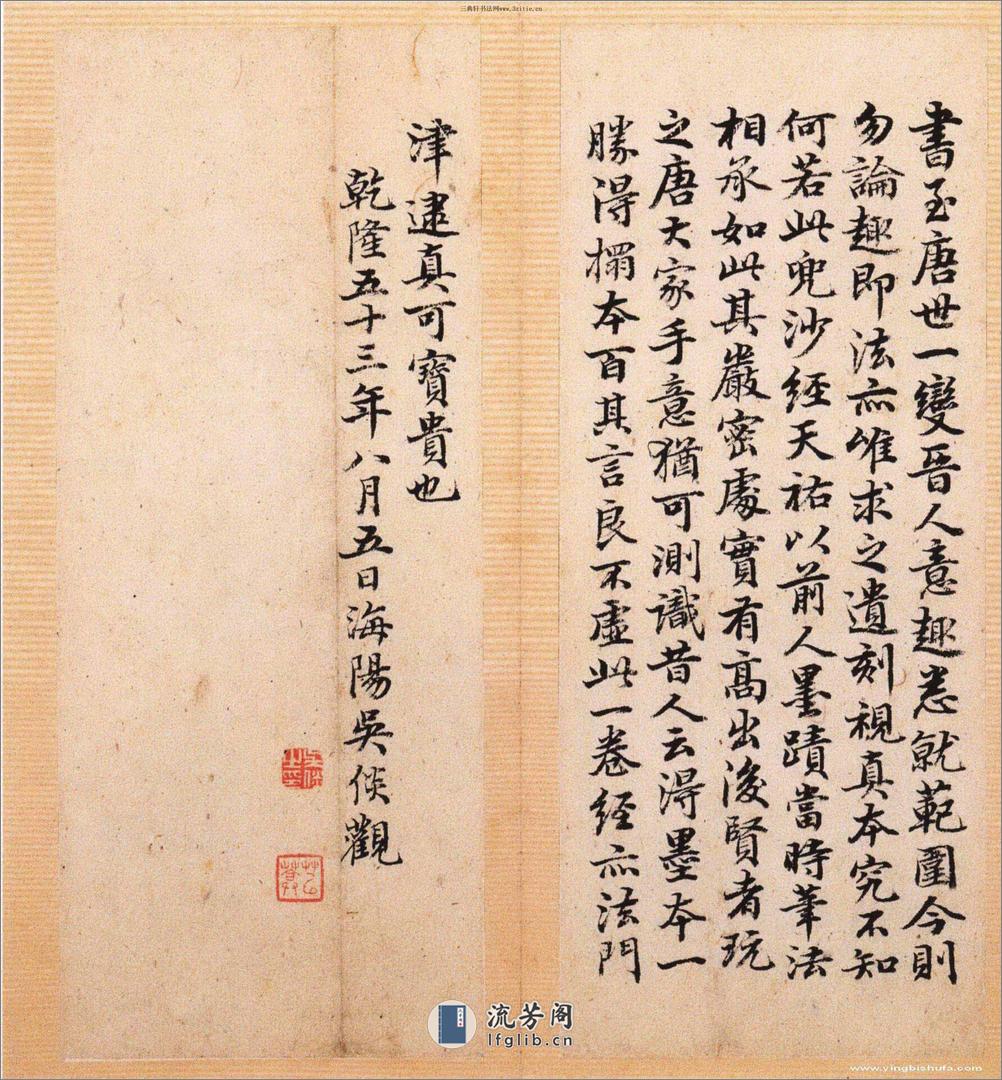 三典轩书法网www.3zitie.cn
書至唐世一變晉人意趣悉就範圍今則
勿論趣即法亦唯求之遺刻視真本究不知
何若此兜沙經天祐以前人墨蹟當時筆法
相承如此其嚴密處實有高出後賢者玩
之唐大家手意猶可測識昔人云得墨本一
勝得搨本百其言良不虛此一卷經亦法門
津逮真可寶貴也
乾隆五十三年八月五日海陽吳倓觀
流芳阁
lfglib.cn
www.yingbishufa.com